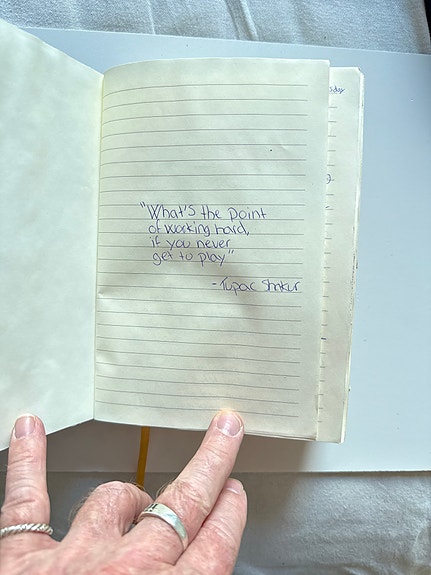 "What's the point
of working hard,
if you never
get to play"
- Tupac Shakur